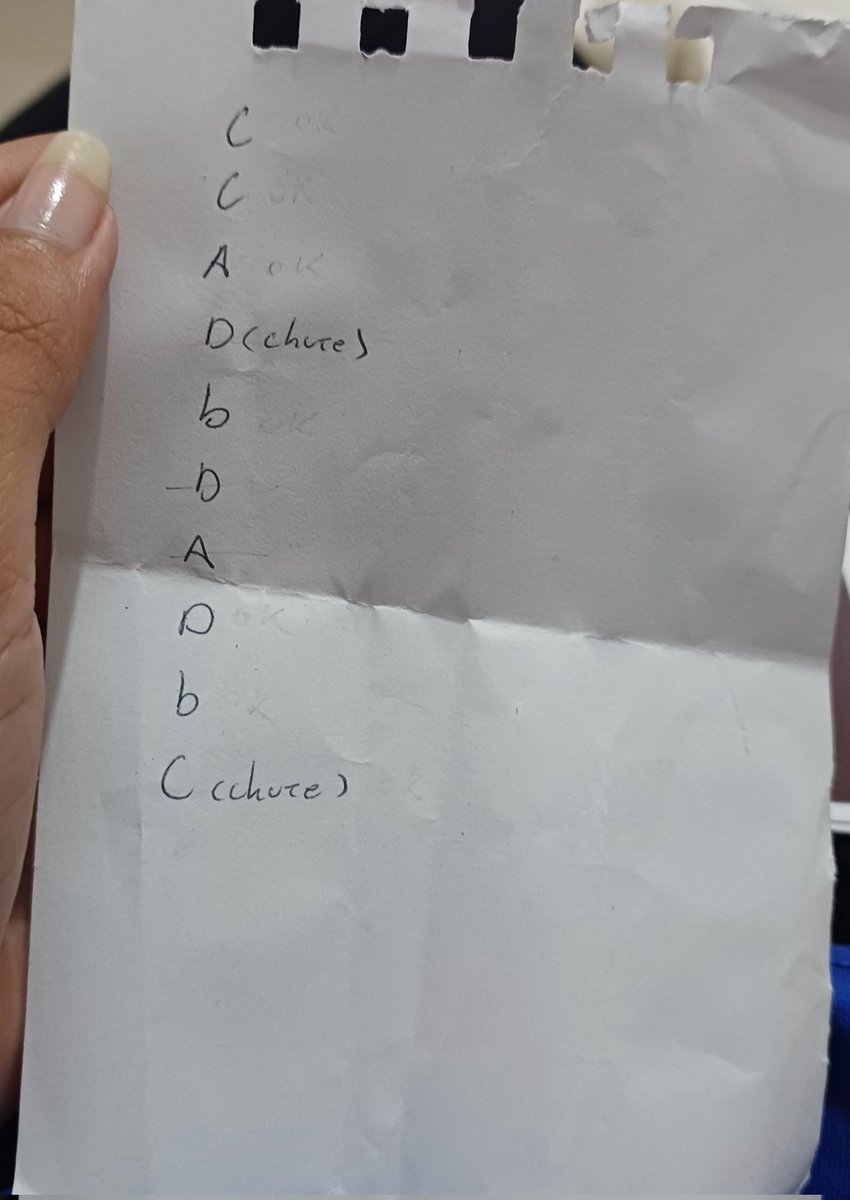 C ok
C ok
A ok
D (chute)
b ok
D
A
D ok
b ok
C (chute) ok